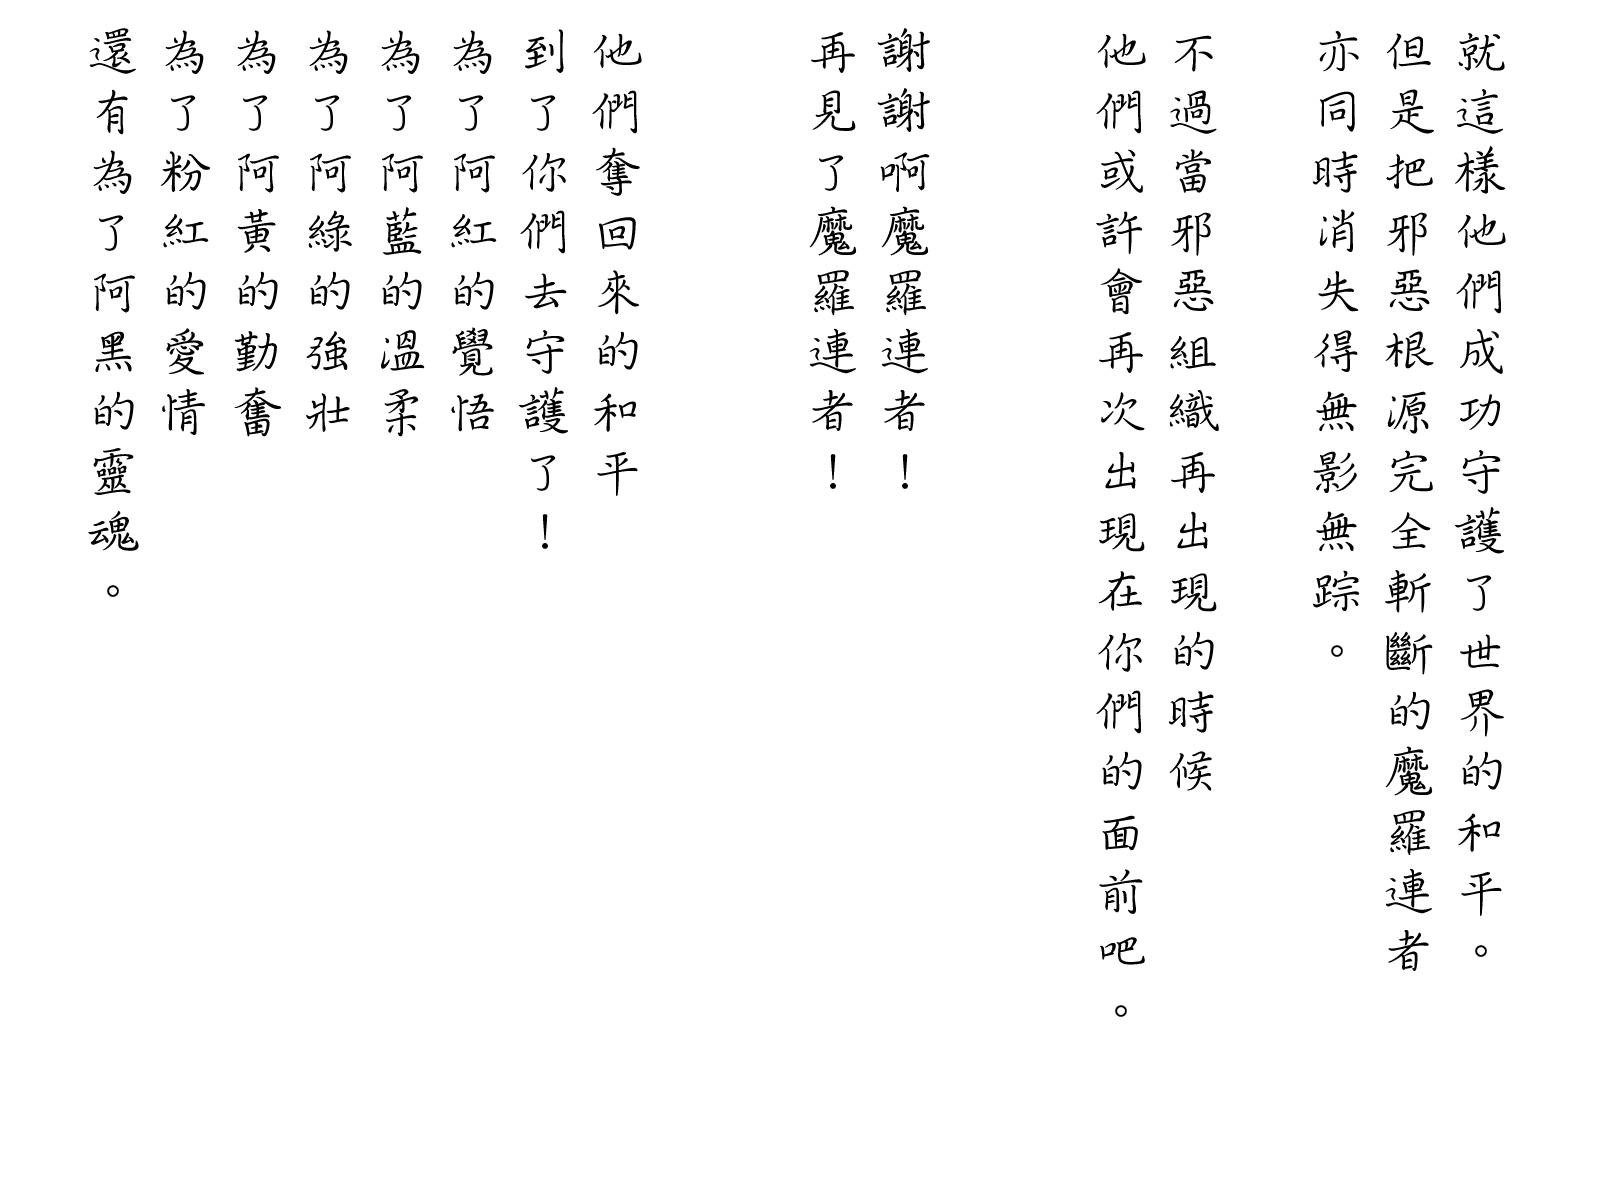 就這樣他們成功守護了世界的和平。
但是把邪惡根源完全斬斷的魔羅連者
亦同時消失得無影無踪。
不過當邪惡組織再出現的時候
他們或許會再次出現在你們的面前吧。
謝謝啊魔羅連者！
再見了魔羅連者！
他們奪回來的和平
到了你們去守護了！
為了阿紅的覺悟
為了阿藍的溫柔
為了阿綠的強壯
為了阿黃的勤奮
為了粉紅的愛情
還有為了阿黑的靈魂。